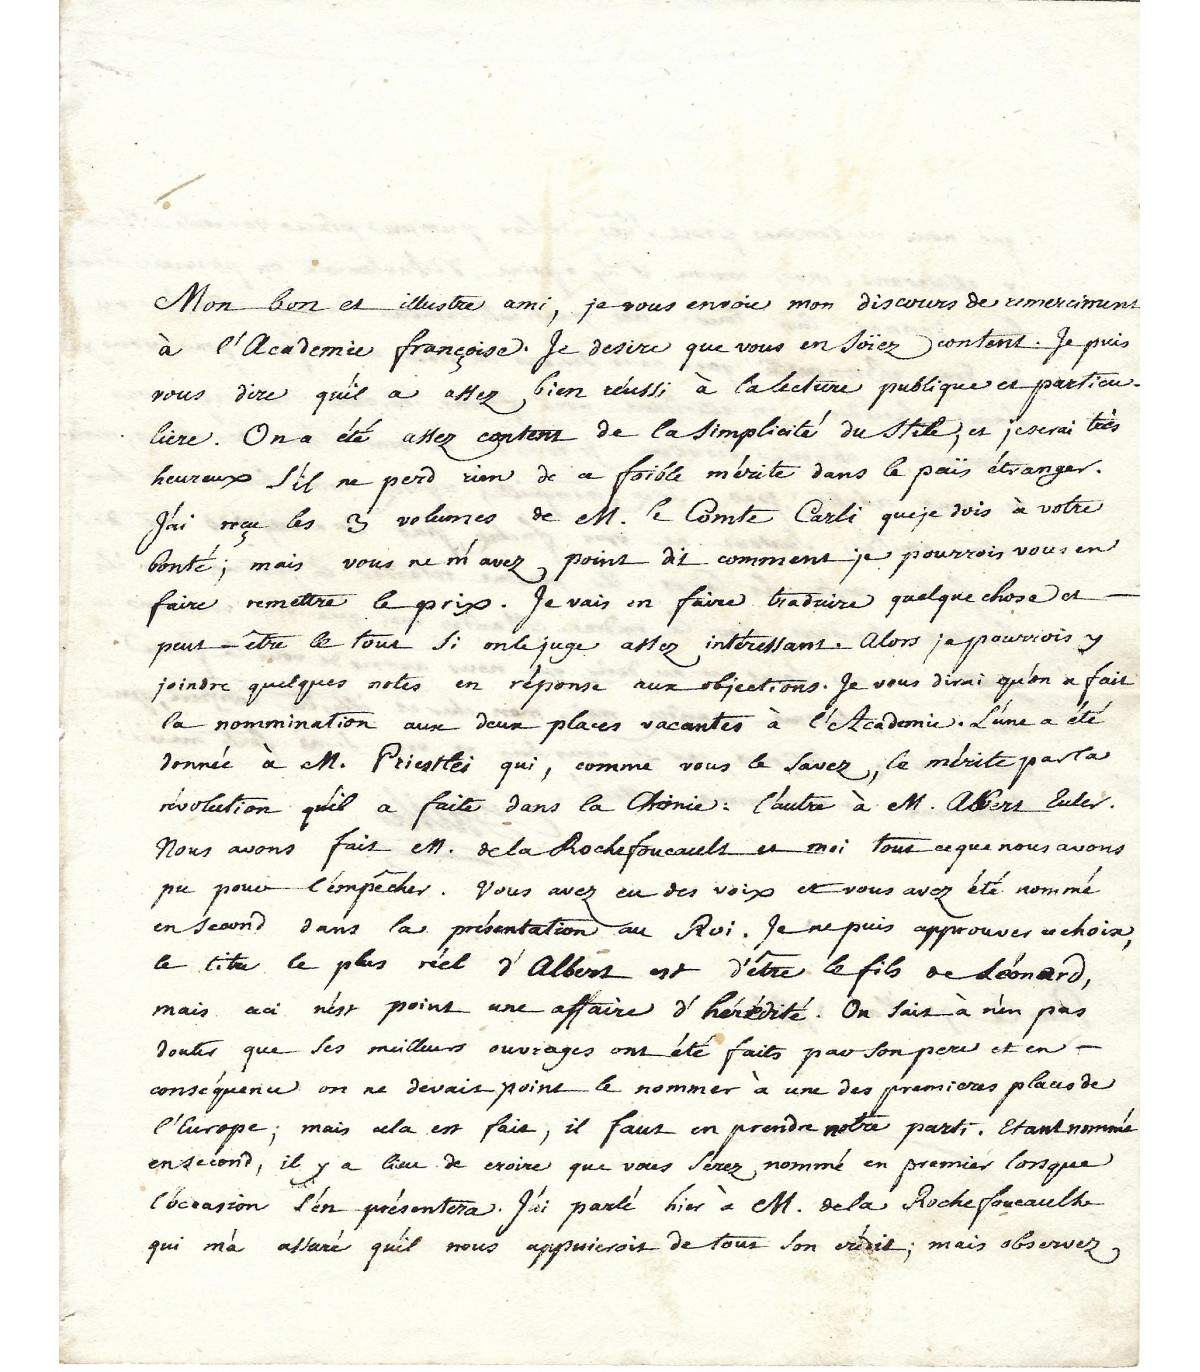 Mon bon et illustre ami, je vous envoie mon discours de remerciment
à l'Academie françoise. Je desire que vous en soïez content. Je puis
vous dire qu'il a assez bien réussi à la lecture publique et particu-
liere. On a été assez content de la simplicité du stile, et je serai très
heureux s'il ne perd rien de ce foible mérite dans le païs étranger.
J'ai reçu les 3 volumes de M. le Comte Carli que je dois à votre
bonté; mais vous ne m'avez point dit comment je pourrois vous en
faire remettre le prix. Je vais en faire traduire quelque chose et —
peut-être le tout si on le juge assez intéressant. Alors je pourrois y
joindre quelques notes en réponse aux objections. Je vous dirai qu'on a fait
la nommination aux deux places vacantes à l'Academie. L'une a été
donnée à M. Priestlei qui, comme vous le savez, le mérite par la
révolution qu'il a faite dans la Chimie: l'autre à M. Albert Euler.
Nous avons fait M. de la Rochefoucault et moi tout ce que nous avons
pu pour l'empêcher. Vous avez eu des voix et vous avez été nommé
en second dans la présentation au Roi. Je ne puis approuver ce choix,
le titre le plus réel d'Albert est d'être le fils de Léonard,
mais ceci n'est point une affaire d'hérédité. On sait à n'en pas
douter que ses meilleurs ouvrages ont été faits par son pere et en —
conséquence on ne devait point le nommer à une des premieres places de
l'Europe; mais cela est fait, il faut en prendre notre parti. Etant nommé
en second, il y a lieu de croire que vous serez nommé en premier lorsque
l'occasion s'en présentera. J'ai parlé hier à M. de la Rochefoucault
qui m'a assuré qu'il nous appuieroit de tout son crédit; mais observez